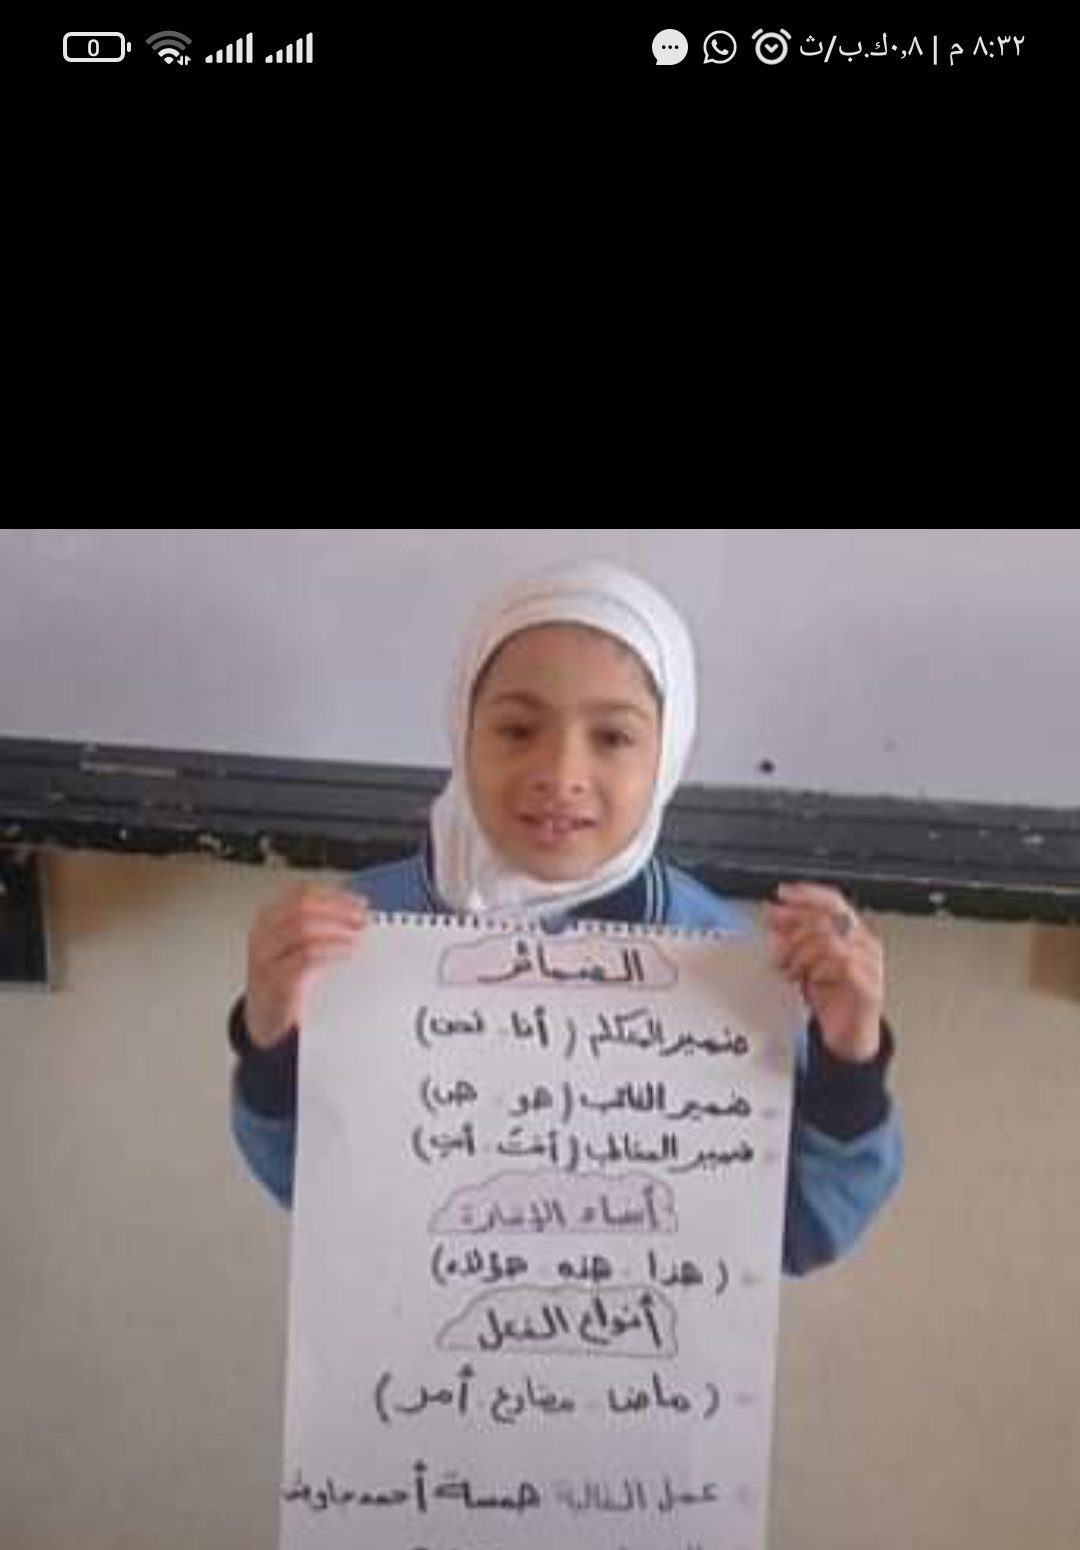 ٨:٣٢ م | ٠٫٨ك.ب/ث
0
الضمائر
ضمير المتكلم ( أنا . نحن )
- ضمير الغائب ( هو . هى )
- ضمير المخاطب ( أنتَ . أنتِ )
أسماء الإشارة
- ( هذا . هذه . هؤلاء )
أنواع الفعل
- ( ماضى . مضارع أمر )
- عمل الطالبة همسة أحمد